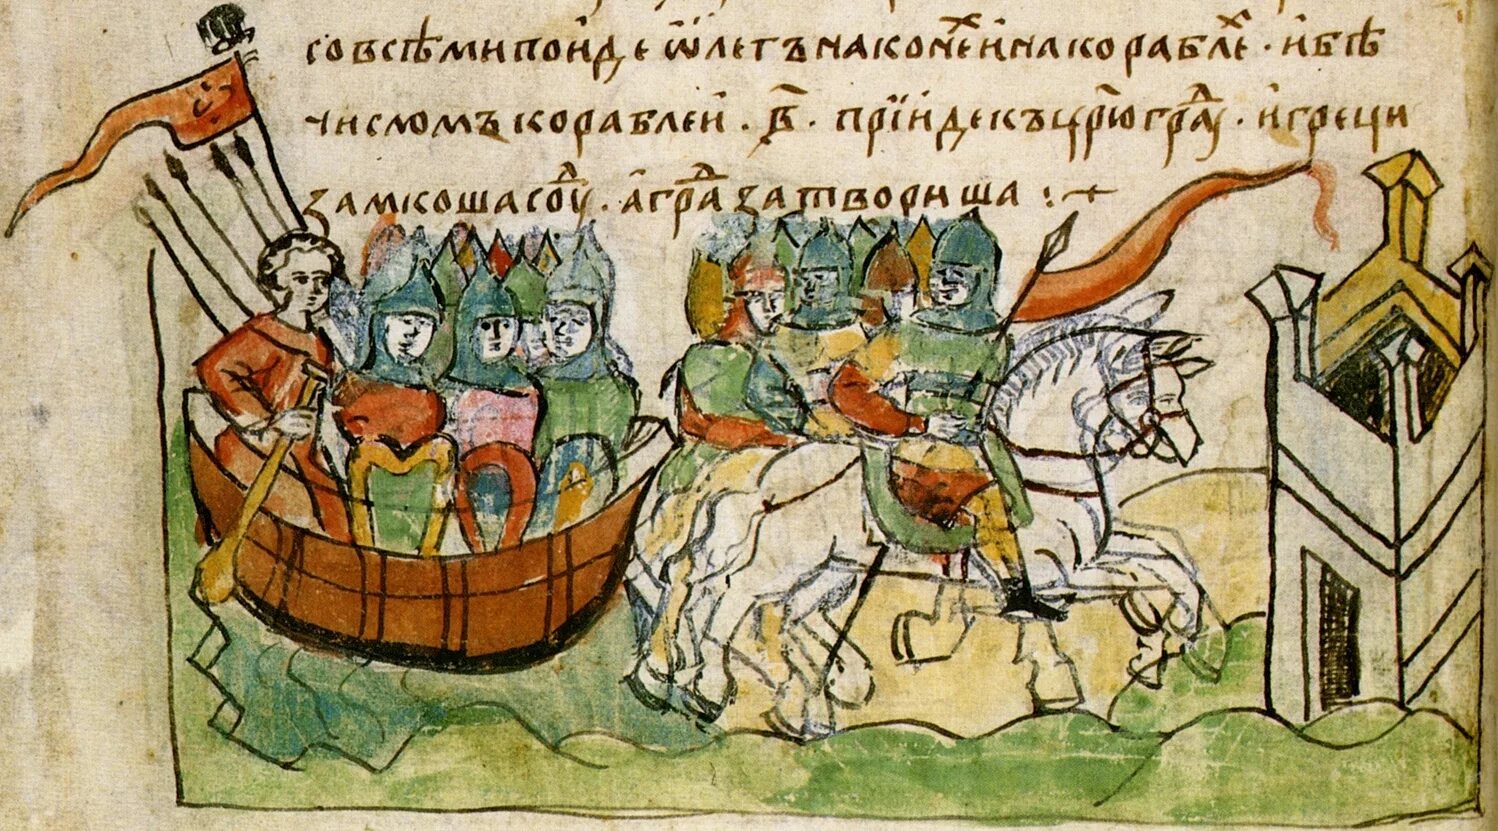 со всѣми поиде ѡлегъ на конеⷯ и на кораблеⷯ · и бѣ
числомъ кораблеи · в҃ · прїиде къ цр҃югра́ⷣ · и греци
замкоша соуⷣ · а граⷣ затвориша :~